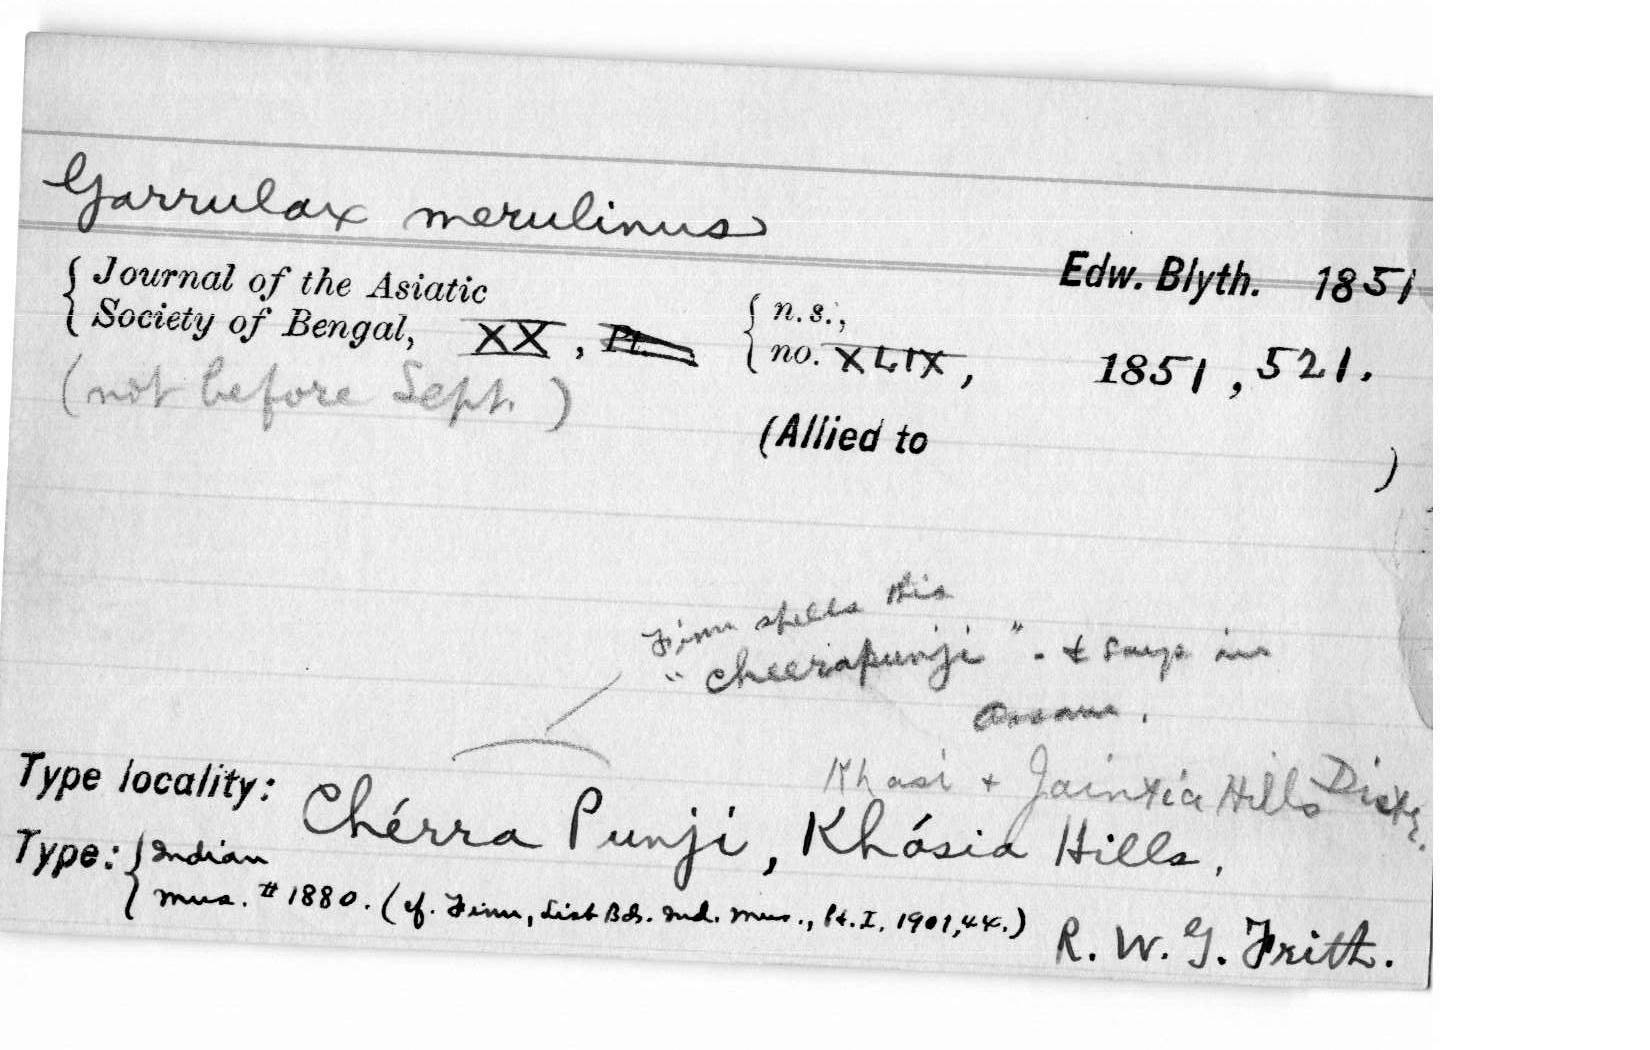 Garrulax merulinus
Edw. Blyth. 1851
Journal of the Asiatic
Society of Bengal, XX, Pt.
n.s.,
no. XLIX, 1851, 521.
(not before Sept.)
(Allied to )
Finn spells this
"Cheerapunji" - & says in
Assam.
Khasi + Jaintia Hills Distr.
Type locality: Chérra Punji, Khásia Hills.
Type: Indian
Mus. # 1880. (cf. Finn, List Bds. Ind. Mus., Pt. I, 1901, 44.)
R. W. G. Frith.